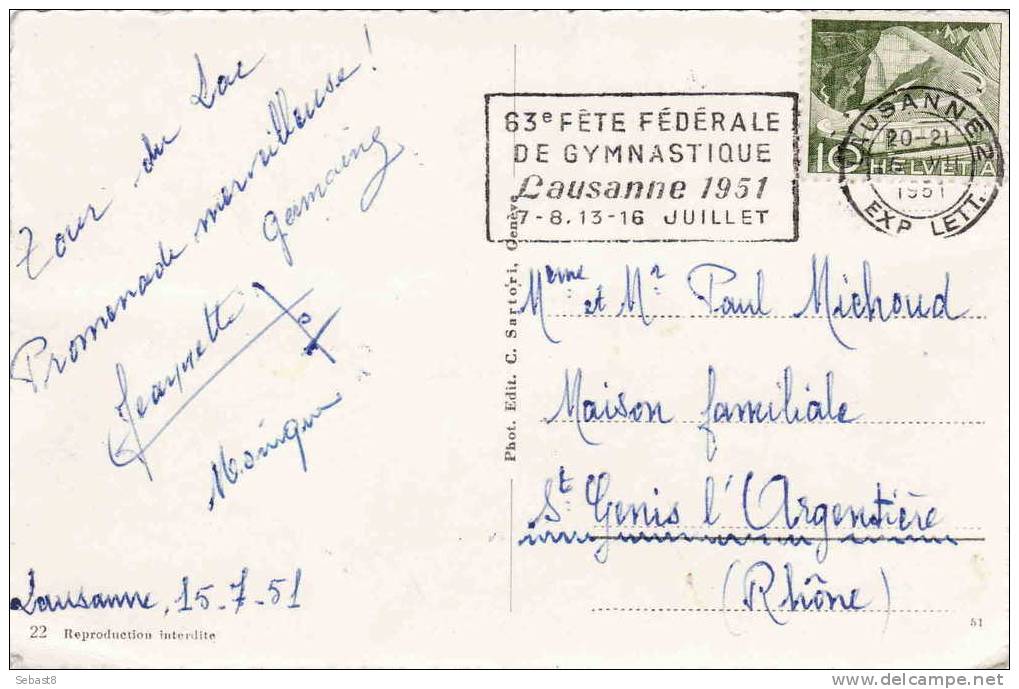 Tour du Lac
Promenade merveilleuse !
Germaine
Jeannette
Monique
Lausanne, 15-7-51
22 Reproduction interdite
Phot. Edit. C. Sartori, Genève
63e FÊTE FÉDÉRALE
DE GYMNASTIQUE
Lausanne 1951
7-8.13-16 JUILLET
10 HELVETIA
LAUSANNE 2
20-21
1951
EXP. LETT.
Mme et Mr Paul Michoud
Maison familiale
St Genis l'Argentière
(Rhône)
51
Sebast8
www.delcampe.net